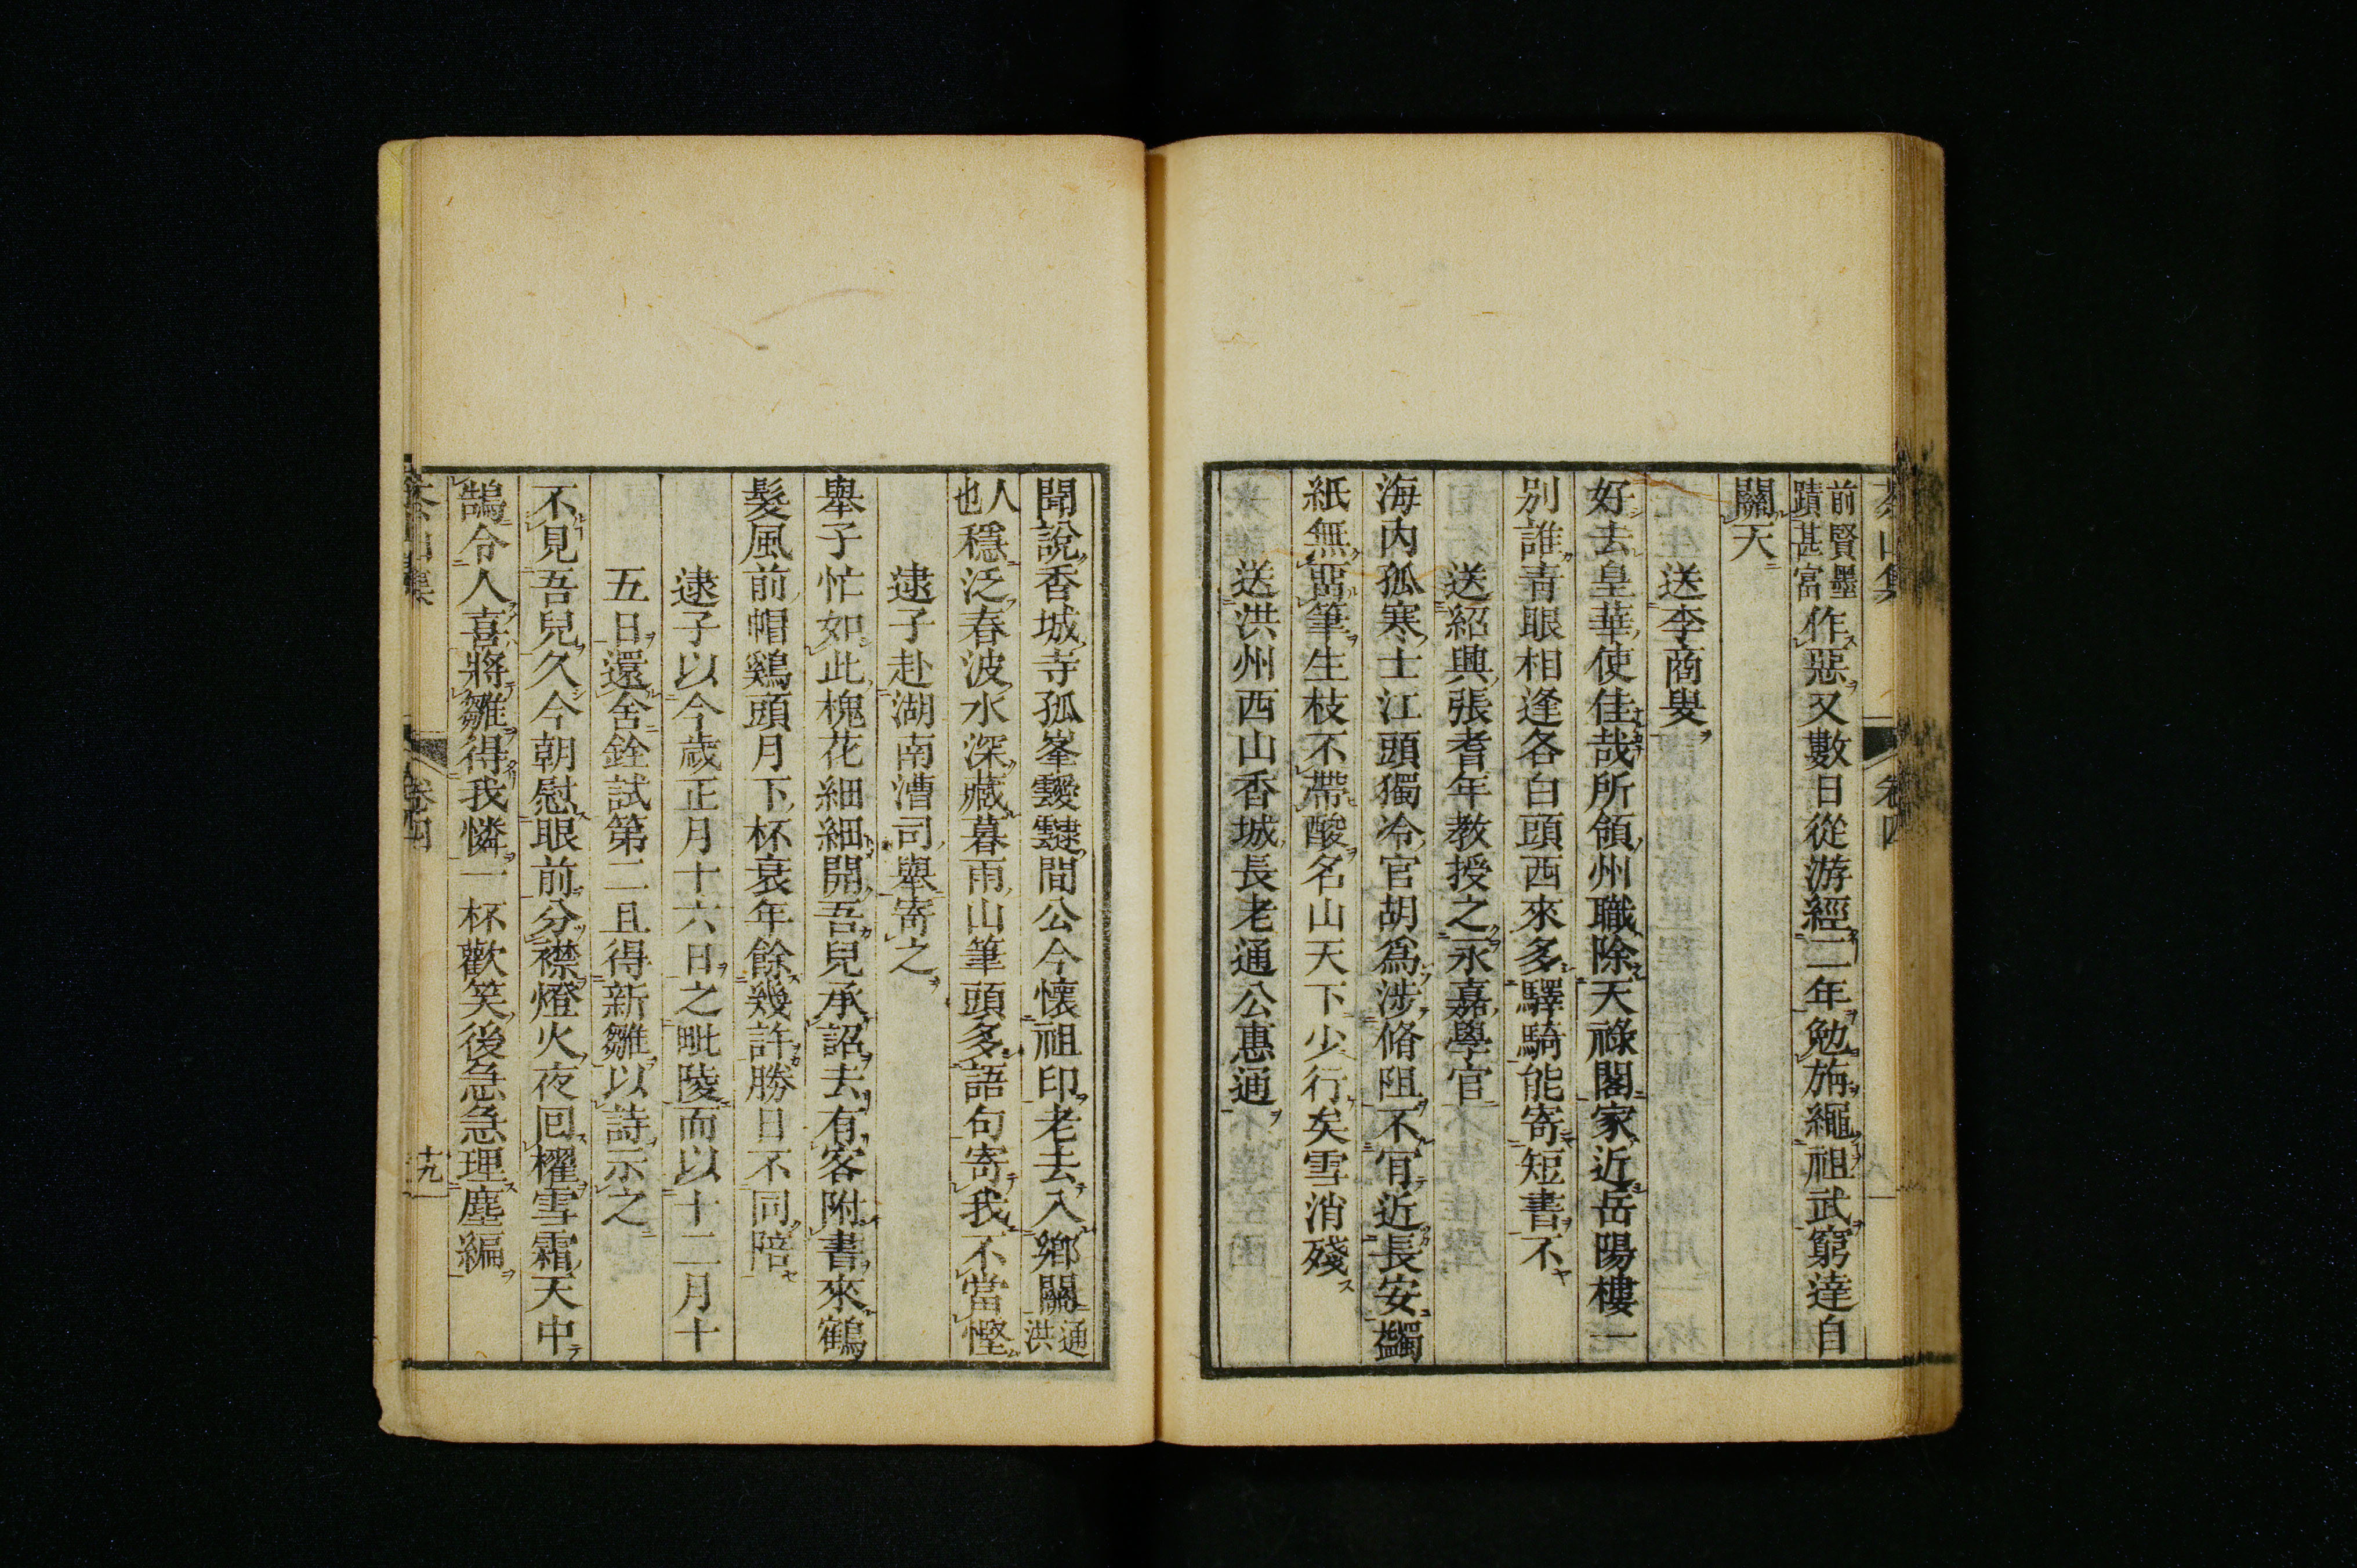 茶山集 卷四
前賢墨蹟甚富作惡又數日從游經二年勉旃繩祖武窮達自
關天
送李商叟
好去皇華使佳哉所領州職除天祿閣家近岳陽樓一
別誰青眼相逢各白頭西來多驛騎能寄短書不
送紹興張耆年教授之永嘉學官
海內孤寒士江頭獨冷官胡為涉脩阻不肎近長安蠲
紙無留筆生枝不帶酸名山天下少行矣雪消殘
送洪州西山香城長老通公惠通
聞說香城寺孤峯靉靆間公今懷祖印老去入鄉關通洪
人也穩泛春波水深藏暮雨山筆頭多語句寄我不當慳
逮子赴湖南漕司舉寄之
舉子忙如此槐花細細開吾兒承詔去有客附書來鶴
髮風前帽鷄頭月下杯衰年餘幾許勝日不同陪
逮子以今歲正月十六日之毗陵而以十二月十
五日還舍銓試第二且得新雛以詩示之
不見吾兒久今朝慰眼前分襟燈火夜回櫂雪霜天中
鵠令人喜將雛得我憐一杯歡笑後急急理塵編
茶山集 卷四 十九